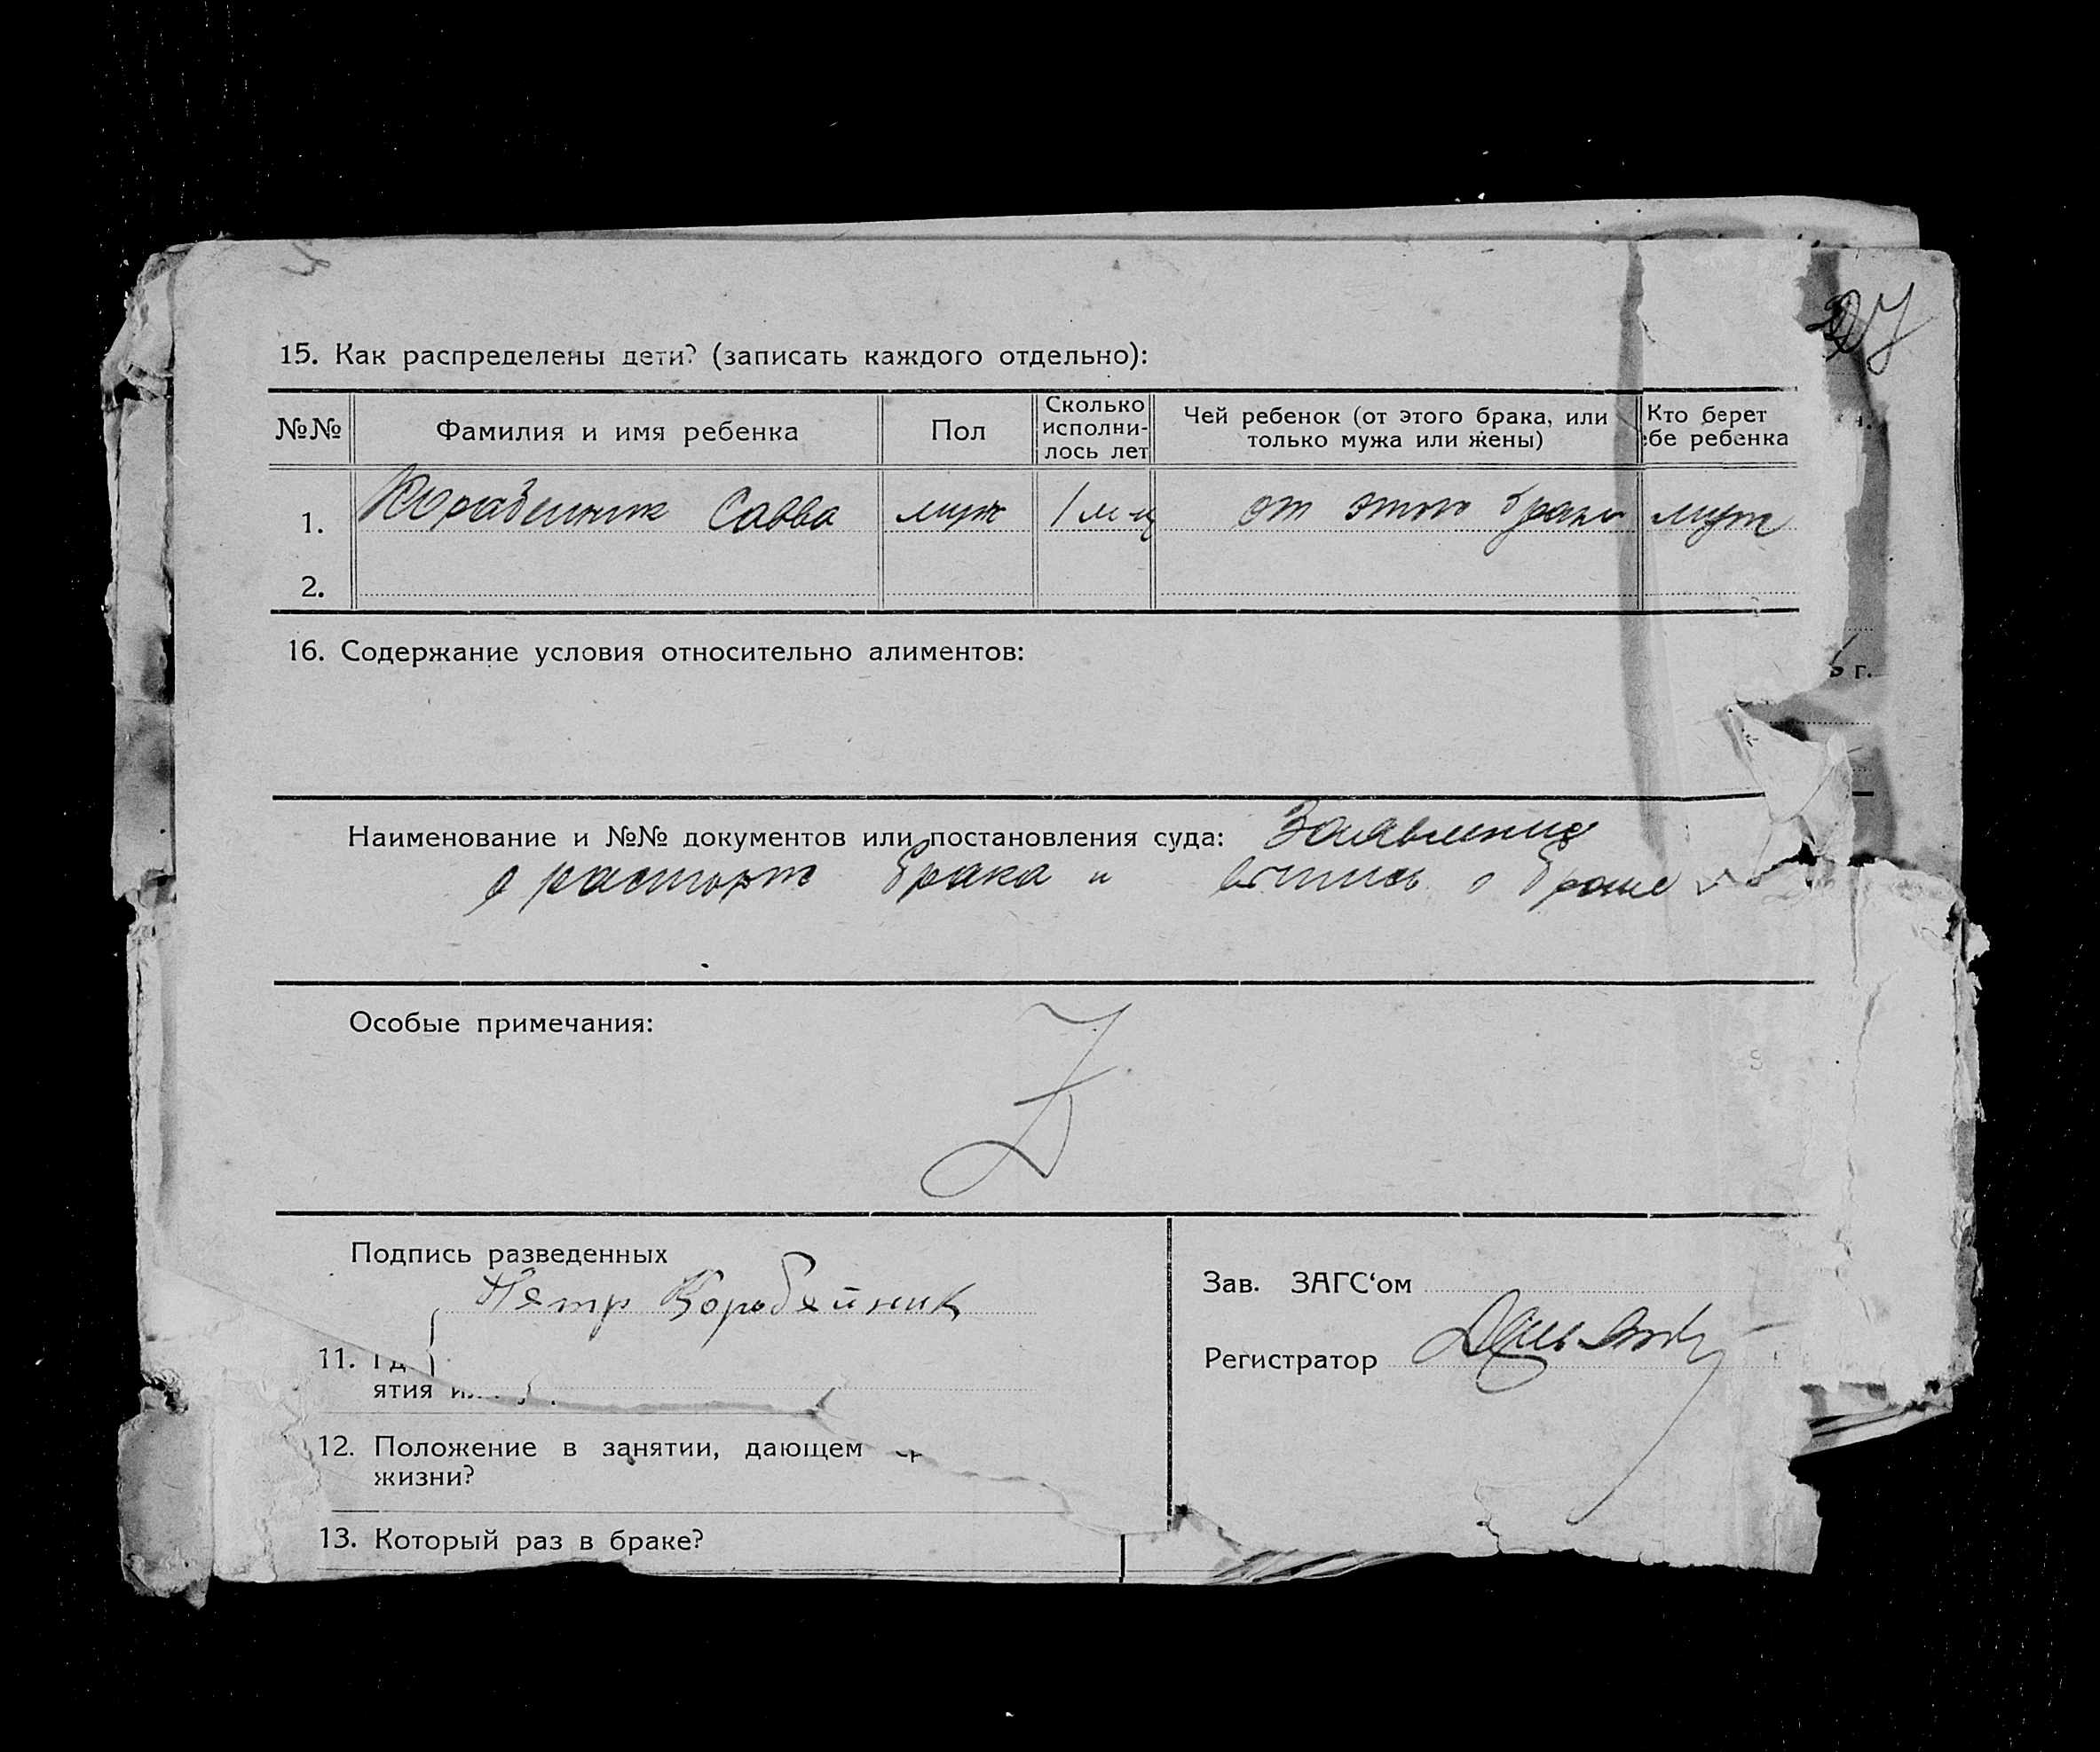 27
15. Как распределены дети? (записать каждого отдельно):
№№ Фамилия и имя ребенка Пол Сколько исполни-лось лет Чей ребенок (от этого брака, или только мужа или жены) Кто берет бе ребенка
1. Савва муж 1 м-ц от этого брака муж
2.
16. Содержание условия относительно алиментов:
6 г.
Наименование и №№ документов или постановления суда: Заявление
о расторж брака и о браке
Особые примечания:
Z
Подпись разведенных
Петр Коробейник
Зав. ЗАГС‘ом
Регистратор
11. Гд
ятия ил
12. Положение в занятии, дающем
жизни?
13. Который раз в браке?